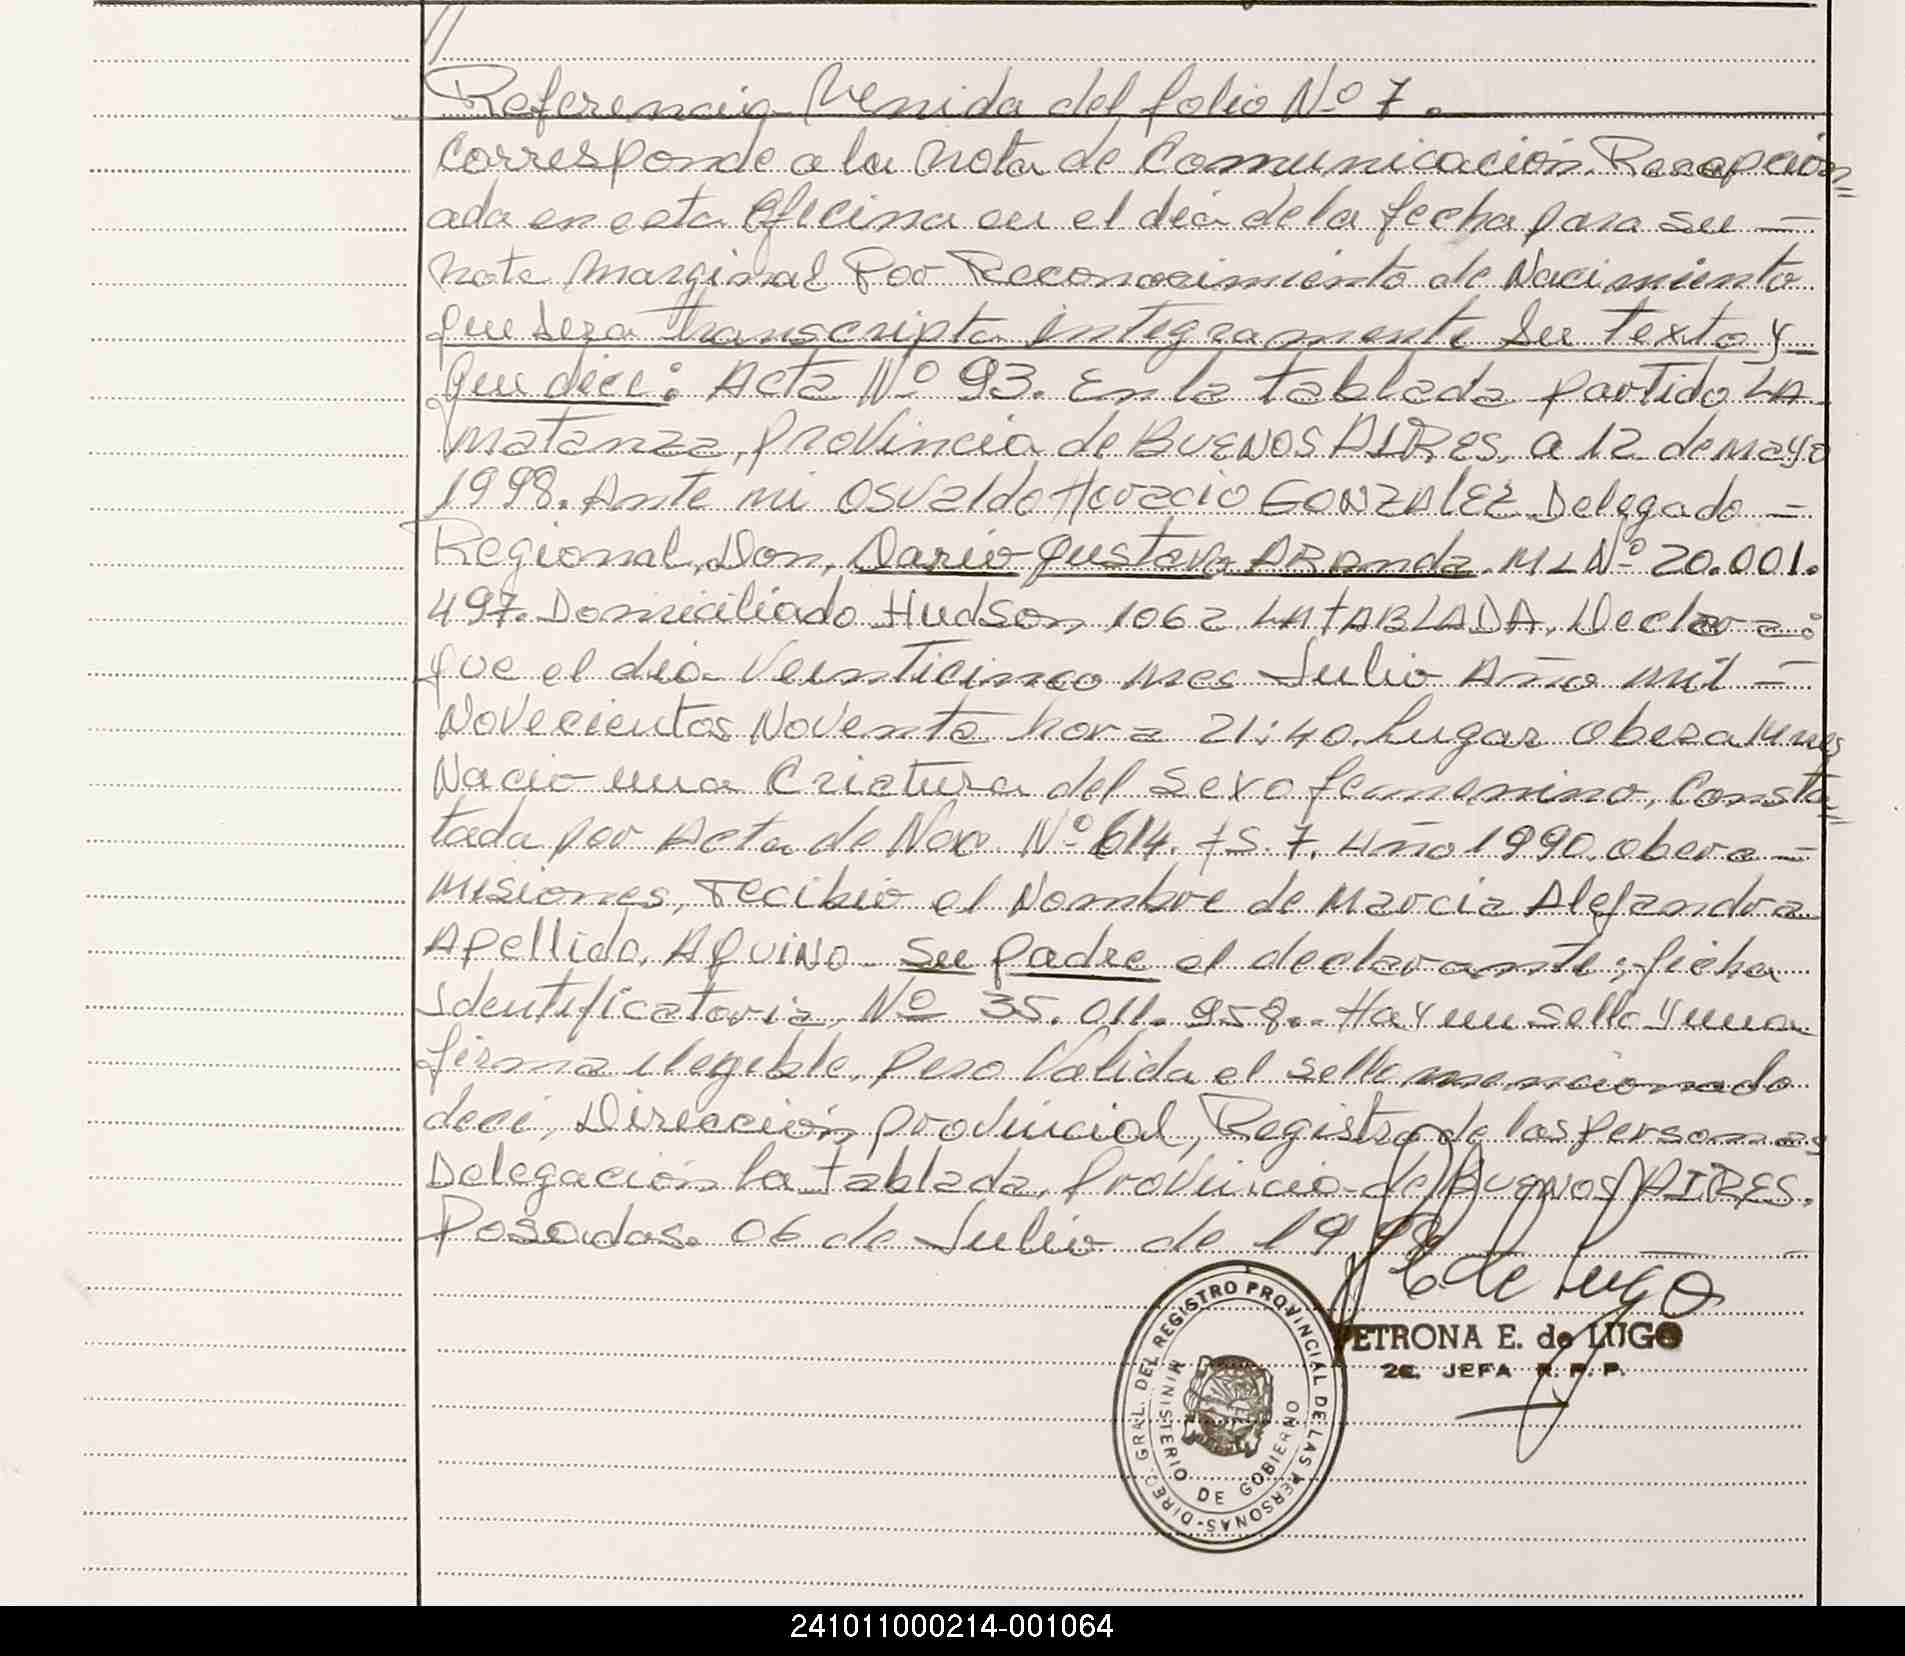 //
Referencia Venida del folio Nº 7.
Corresponde a la Nota de Comunicación. Recepción=
ada en esta Oficina en el día de la fecha para su —
Nota Marginal Por Reconocimiento de Nacimiento
que sera transcripta integramente su texto y
Que dice: Acta Nº 93. En la tablada partido LA
Matanza, provincia de BUENOS AIRES, a 12 de mayo
1998. Ante mi Osvaldo Horacio GONZALEZ Delegado =
Regional, Don, Dario Gustavo ARanda. MI Nº 20.001.
497. Domiciliado Hudson 1062 LA TABLADA, Declara:
que el dia Veinticinco mes Julio Año mil =
Novecientos Noventa hora 21:40. Lugar Obera Mnes
Nacio una Criatura del sexo femenino, Consta=
tada por Acta de Nac. Nº 614. fs. 7. Año 1990. obera =
Misiones, recibio el Nombre de Marcia Alejandra
Apellido, AQUINO. Su padre el declarante; ficha
identificatoria, Nº 35.011.958.. Hay un sello y una
firma ilegible, pero Valida el sello mencionado
deci, Dirección, provincial, Registro de las personas
Delegación La tablada, Provincia de BUENOS AIRES.
Posadas. 06 de Julio de 1998
E de Lugo
PETRONA E. de LUGO
2a. JEFA R.P.P.
DIREC. GRAL. DEL REGISTRO PROVINCIAL DE LAS PERSONAS-
MINISTERIO DE GOBIERNO
241011000214-001064